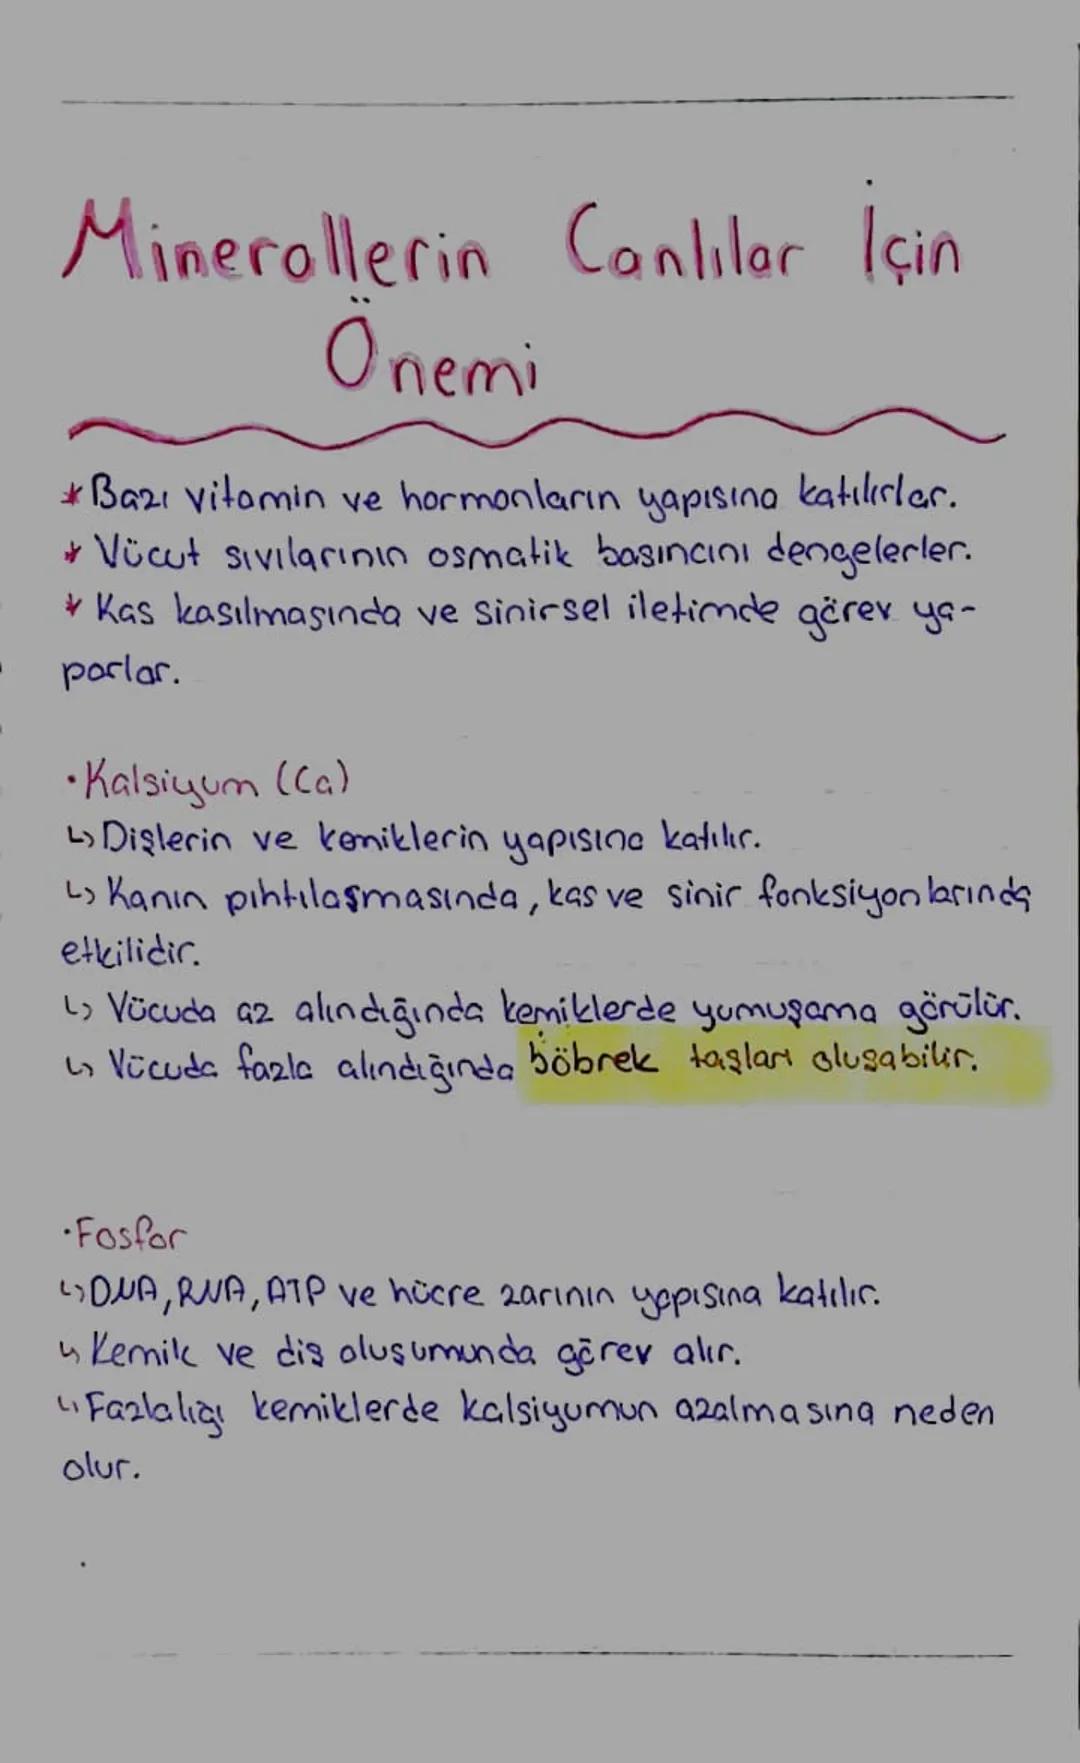 Minerallerin Canlılar İçin
Önemi
* Bazı vitamin ve hormonların yapısına katılırlar.
* Vücut sıvılarının osmatik basıncını dengelerler.
* Kas kasılmasında ve sinirsel iletimde görev ya-
parlar.
• Kalsiyum (Ca)
↳ Dişlerin ve kemiklerin yapısına katılır.
↳ Kanın pıhtılaşmasında, kas ve sinir fonksiyonlarında
etkilidir.
↳ Vücuda az alındığında kemiklerde yumuşama görülür.
↳ Vücuda fazla alındığında böbrek taşları oluşabilir.
• Fosfor
↳ DNA, RNA, ATP ve hücre zarının yapısına katılır.
↳ Kemik ve diş oluşumunda görev alır.
↳ Fazlalığı kemiklerde kalsiyumun azalmasına neden
olur.